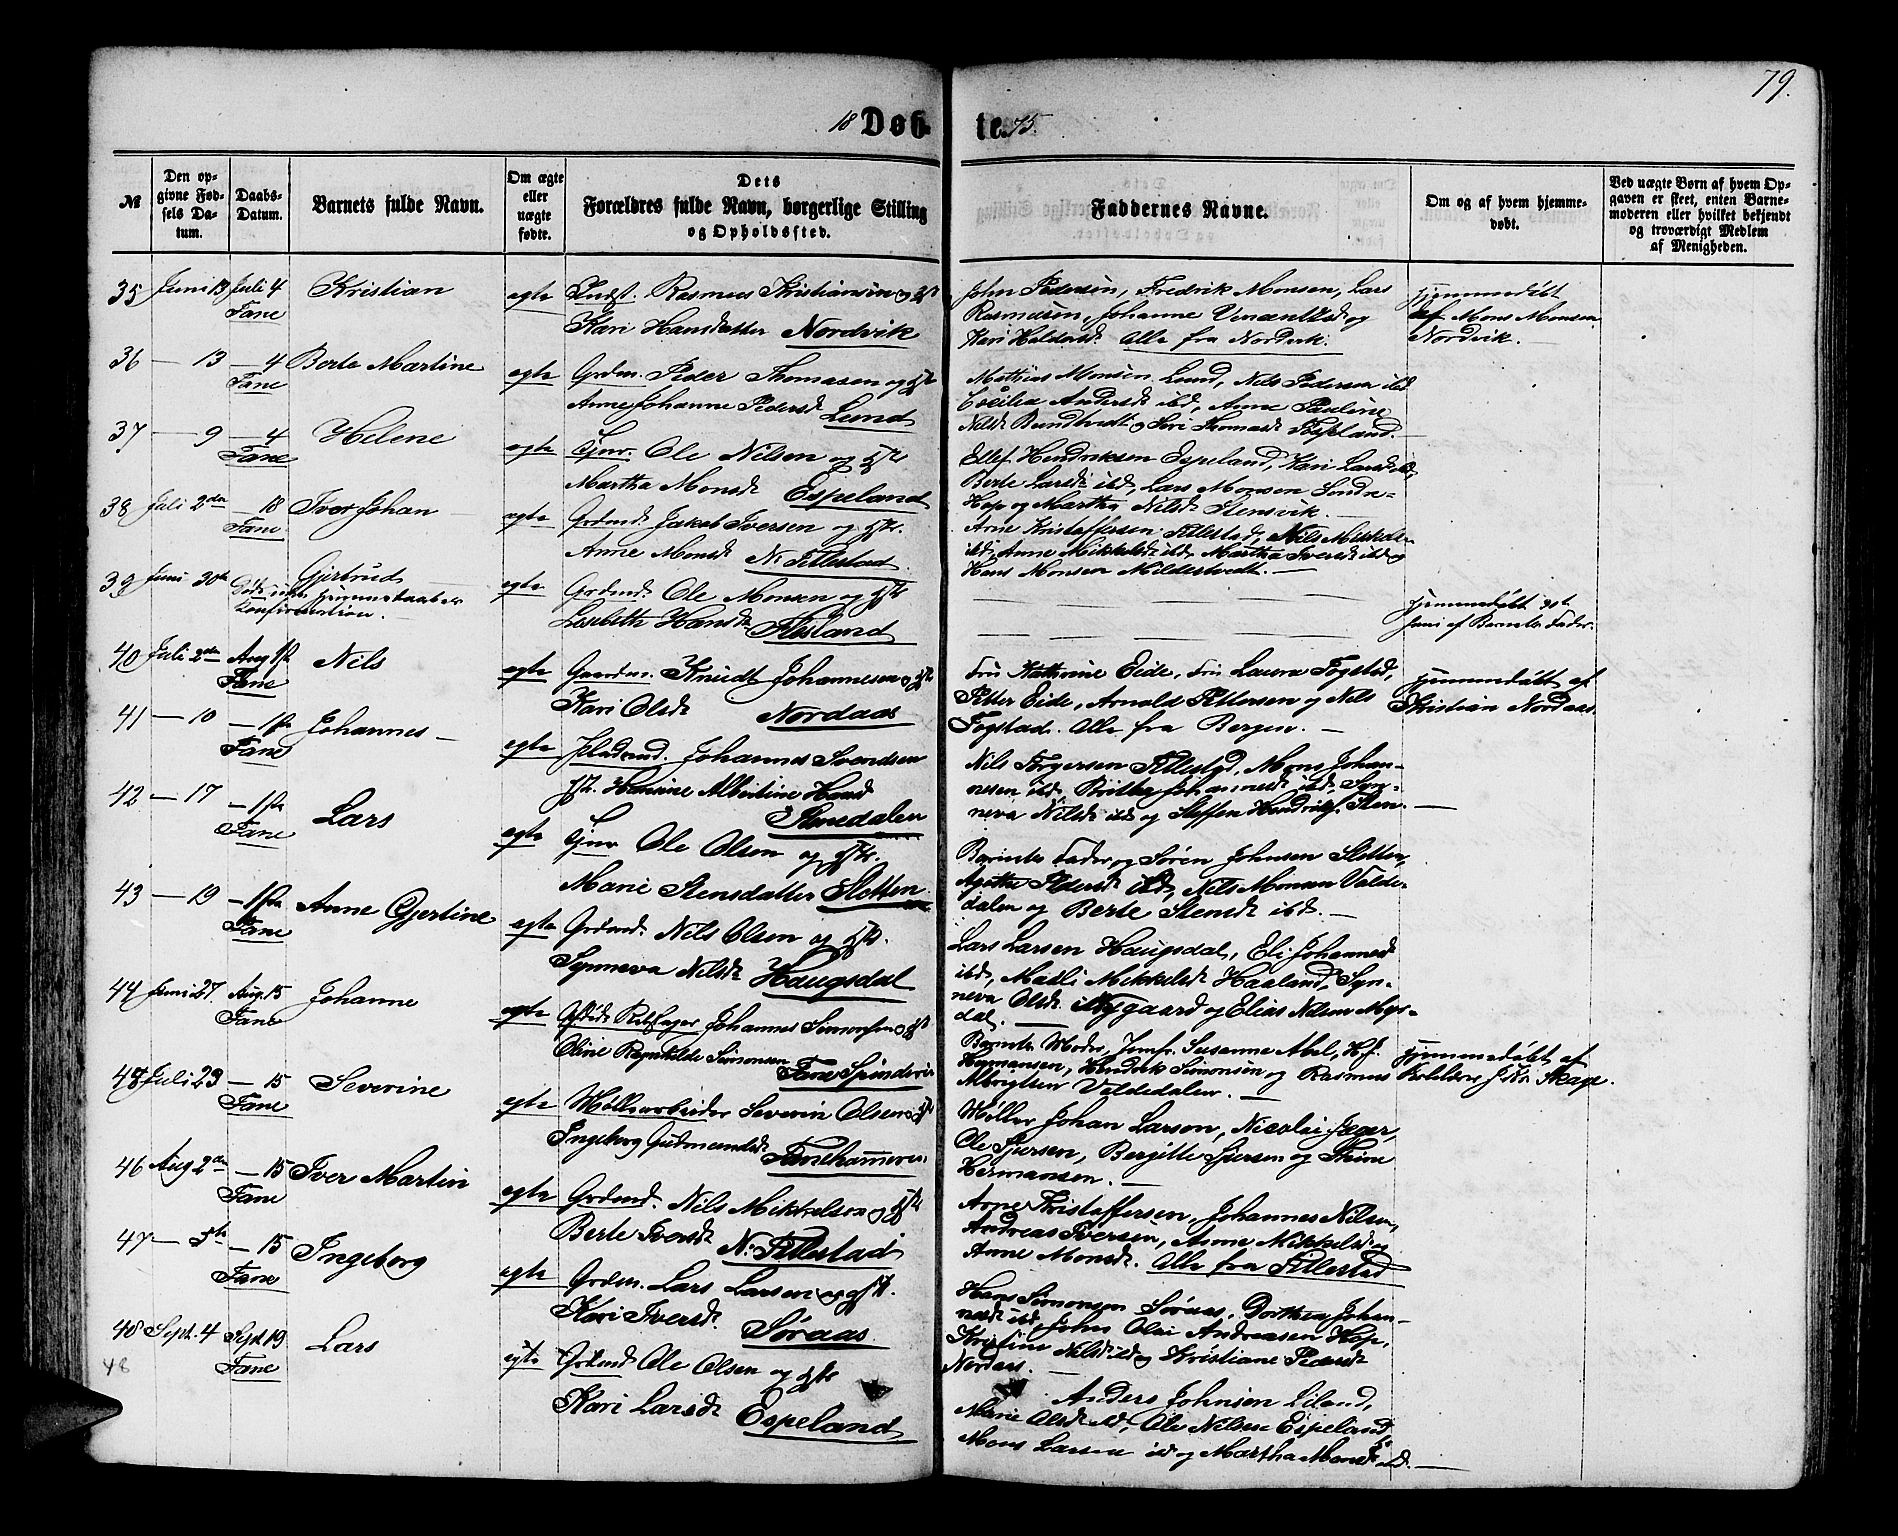 79.
18 Døb-
te. 75.
№
Den op-
givne Fød-
sels Da-
tum.
Daabs-
Datum.
Barnets fulde Navn.
Om ægte
eller
uægte
fødte.
Dets
Forældres fulde Navn, borgerlige Stilling
og Opholdssted.
Faddernes Navne.
Om og af hvem hjemme-
døbt.
Ved uægte Børn af hvem Op-
gaven er skeet, enten Barne-
moderen eller hvilket bekjendt
og troværdigt Medlem
af Menigheden.
35 Juni 13 Juli 4 Kristian
Fane
egte Indst. Rasmus Kristiansen og Hst
Kari Hansdatter Nordvik
John Pedersen, Fredrik Monsen, Lars
Rasmusen, Johanne og
Kari Alle fra Nordvik.
hjemmedøbt
af Mons Monsen
Nordvik.
36 — 13 — 4 Berte Martine
Fane
egte Grdm. Peder Thomasen og Hst
Anne Johanne Pedersd Lund
Mathias Monsen Lund, Nils Pedersen ibd
Andersd ibd, Anne Pauline
Nilsd og Siri Espeland.
37 — 9 — 4 Helene
Fane
egte Ole Nilsen og Hstr
Martha Monsd Espeland
Ellef Hendriksen Espeland, Kari Larsd ibd,
Berte Larsd ibd, Lars Monsen Søndre-
Hop og Martha Nilsd Stensvik.
38 Juli 2den — 18 Iver Johan
Fane
egte Grdmd. Jakob Iversen og Hstr.
Anne Monsd N. Titlestad
Arne Kristoffersen Titlestad, Nils Mikkelsen
ibd, Anne Mikkelsd ibd Martha Iversd ibd og
Hans Monsen Mildestvedt.
39 Juni 30te Gjertrud
Døde uden hjemmedaabens
Konfirmation.
egte Grdmd. Ole Monsen og Hstr
Lisbeth Hansd Flesland
hjemmedøbt 30te
Juni af Barnets Fader.
40 Juli 2den Aug 1ste Nils
Fane
egte Gaardm. Knudt Johannesen og Hstr
Kari Olsd Nordaas
Fru Kathrine Eide, Fru Laura Fogstad,
Petter Eide, Arnold Pettersen og Nils
Fogstad. Alle fra Bergen.
hjemmedøbt af
Kristian Nordaas.
41 — 10 — 1ste Johannes
Fane
egte Johannes Svendsen
Hst. Hansine Albertine
Smedalen
Nils Torgersen Titlestad, Mons Johan-
nesen ibd, Britha Johannesd ibd, Syn-
neva Nilsd ibd og Steffen
42 — 17 — 1ste Lars
Fane
egte Ole Olsen og Hstr.
Marie Stensdatter Sletten
Barnets Fader og Søren Johnsen Sletten,
Agathe Pedersd ibd, Nils Monsen Valde-
dalen og Berte Stensd ibd.
43 — 19 — 1ste Anne Gjertine
Fane
egte Grdmd. Nils Olsen og Hstr.
Synneva Nilsd Haugsdal
Lars Larsen Haugsdal, Eli Johannesd
ibd, Madli Mikkelsd Haaland, Syn-
neva Olsd. Nygaard og Elias Nilsen Myr-
dal.
44 Juni 27 Aug. 15 Johanne
Fane
egte Johannes Simonsen og Hst
Oline Ragnhilde Simonsen Fane Spinderi
Barnets Moder, Jomfr. Susanne Abel, H.f.
Hermansen, Hendrik Simonsen og Rasmus
Valdedalen.
hjemmedøbt af
J. Kr. Skage.
45 Juli 23 — 15 Severine
Fane
egte Severin Olsen og Hst
Ingeborg Gudmundsd. Fanehammeren
Møller Johan Larson, Nicolai Jæger,
Ole Sjursen, Bergitte Sjursen og Stine
Hermansen.
46 Aug 2den — 15 Iver Martin
Fane
egte Grdmd. Nils Mikkelsen og Hstr
Berte Iversd N. Titlestad
Arne Kristoffersen, Johannes Nilsen,
Andreas Iversen, Anne Mikkelsd og
Anne Monsd. Alle fra Titlestad
47 — 5te — 15 Ingeborg
Fane
egte Grdm. Lars Larsen og Hst.
Kari Iversd. Søraas
Hans Simonsen Søraas, Dorthea Johan-
nesd ibd, John Olai Andreasen Hop,
Kristine Nilsd ibd og Kristiane Pedersd
Nordaas.
48 Sept. 4 Sept 19 Lars
48 Fane
egte Grdmd Ole Olsen og Hstr
Kari Larsd Espeland
Anders Johnsen Liland,
Marie Olsd ibd, Ole Nilsen Espeland,
Mons Larsen ibd og Martha Monsd ibd.